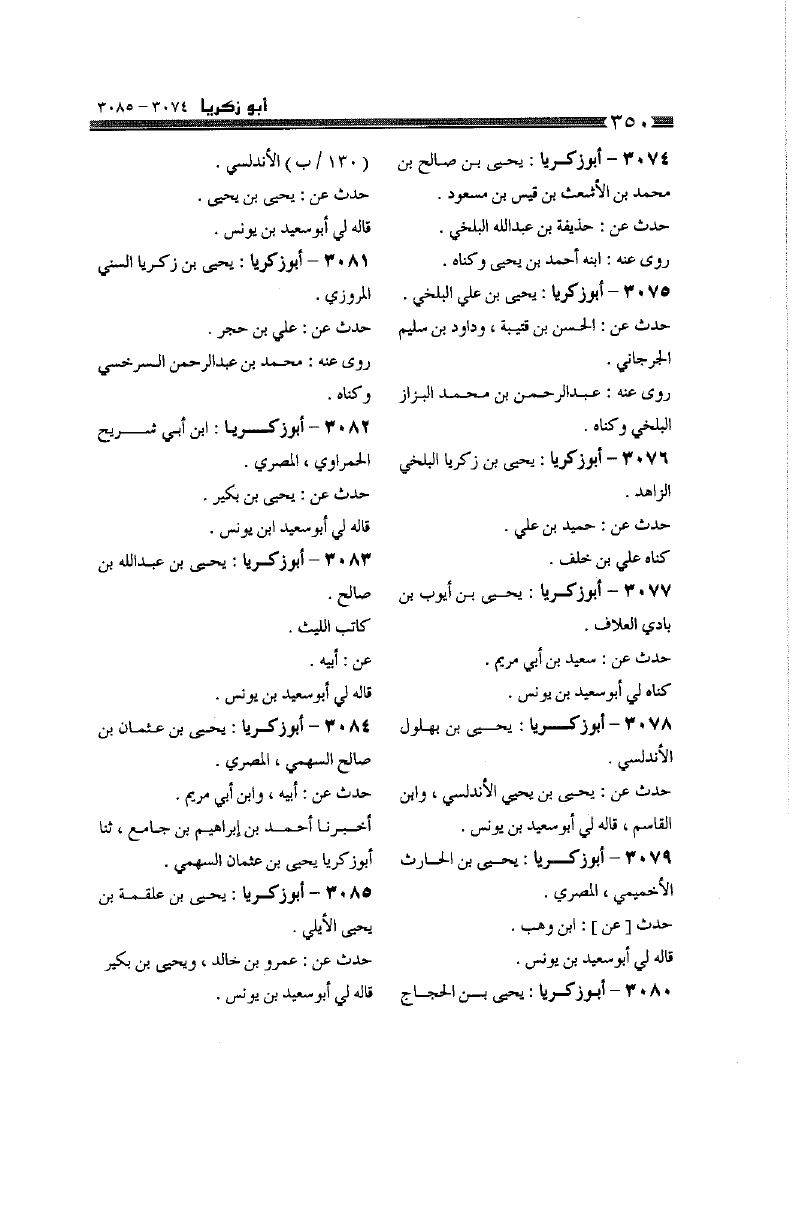 أبو زكريا ٣٠٧٤ – ٣٠٨٥
٣٥٠
٣٠٧٤ – أبوزكريا : يحيى بن صالح بن
محمد بن الأشعث بن قيس بن مسعود .
حدث عن : حذيفة بن عبدالله البلخي .
روى عنه : ابنه أحمد بن يحيى وكناه .
٣٠٧٥ – أبوزكريا : يحيى بن علي البلخي .
حدث عن : الحسن بن قتيبة ، وداود بن سليم
الجرجاني .
روى عنه : عبدالرحمن بن محمد البزاز
البلخي وكناه .
٣٠٧٦ – أبوزكريا : يحيى بن زكريا البلخي
الزاهد .
حدث عن : حميد بن علي .
كناه علي بن خلف .
٣٠٧٧ – أبوزكريا : يحيى بن أيوب بن
بادي العلاف .
حدث عن : سعيد بن أبي مريم .
كناه لي أبوسعيد بن يونس .
٣٠٧٨ – أبوزكريا : يحيى بن بهلول
الأندلسي .
حدث عن : يحيى بن يحيى الأندلسي ، وابن
القاسم ، قاله لي أبوسعيد بن يونس .
٣٠٧٩ – أبوزكريا : يحيى بن الحارث
الأخميمي ، المصري .
حدث [ عن ] : ابن وهب .
قاله لي أبوسعيد بن يونس .
٣٠٨٠ – أبوزكريا : يحيى بن الحجاج
( ١٣٠ / ب ) الأندلسي .
حدث عن : يحيى بن يحيى .
قاله لي أبوسعيد بن يونس .
٣٠٨١ – أبوزكريا : يحيى بن زكريا السني
المروزي .
حدث عن : علي بن حجر .
روى عنه : محمد بن عبدالرحمن السرخسي
وكناه .
٣٠٨٢ – أبوزكريا : ابن أبي شريح
الحمراوي ، المصري .
حدث عن : يحيى بن بكير .
قاله لي أبوسعيد ابن يونس .
٣٠٨٣ – أبوزكريا : يحيى بن عبدالله بن
صالح .
كاتب الليث .
عن : أبيه .
قاله لي أبوسعيد بن يونس .
٣٠٨٤ – أبوزكريا : يحيى بن عثمان بن
صالح السهمي ، المصري .
حدث عن : أبيه ، وابن أبي مريم .
أخبرنا أحمد بن إبراهيم بن جامع ، ثنا
أبوزكريا يحيى بن عثمان السهمي .
٣٠٨٥ – أبوزكريا : يحيى بن علقمة بن
يحيى الأيلي .
حدث عن : عمرو بن خالد ، ويحيى بن بكير
قاله لي أبوسعيد بن يونس .